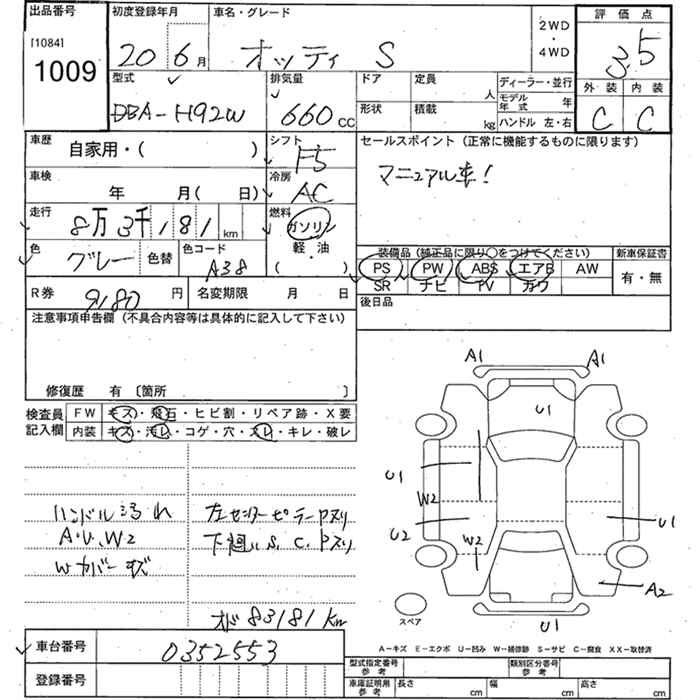 出品番号
[1084]
1009
初度登録年月
20年 6月
車名・グレード
オッティ S
2WD
・
4WD
評価点
3.5
外装 内装
C C
型式
DBA-H92W
排気量
660cc
ドア
形状
定員 人
積載 kg
ディーラー・並行
モデル年式 年
ハンドル 左・右
車歴
自家用・( )
シフト
F5
セールスポイント (正常に機能するものに限ります)
マニュアル車!
車検
年 月( 日)
冷房
AC
走行
8万3千181km
燃料
ガソリン
軽・油
( )
色
グレー
色替
色コード
A38
装備品 (純正品に限り○をつけてください)
新車保証書
PS PW ABS エアB AW
SR ナビ TV カワ
有・無
R券
9180円
名変期限 月 日
後日品
注意事項申告欄 (不具合内容等は具体的に記入して下さい)
修復歴 有 〔箇所 〕
検査員記入欄
FW キズ・飛石・ヒビ割・リペア跡・X要
内装 キズ・汚レ・コゲ・穴・スレ・キレ・破レ
ハンドル汚れ
A.U.W2
Wカバーキズ
左センターピラーアズリ
下廻りS.C.アズリ
オド83181km
A1 A1
U1
U1
W2
U2 W2 U1
A2
スペア
U1
A-キズ E-エクボ U-凹み W-補修跡 S-サビ C-腐食 XX-取替済
車台番号
0352553
登録番号
型式指定番号 参考
類別区分番号 参考
車庫証明用 参考
長さ cm
幅 cm
高さ cm